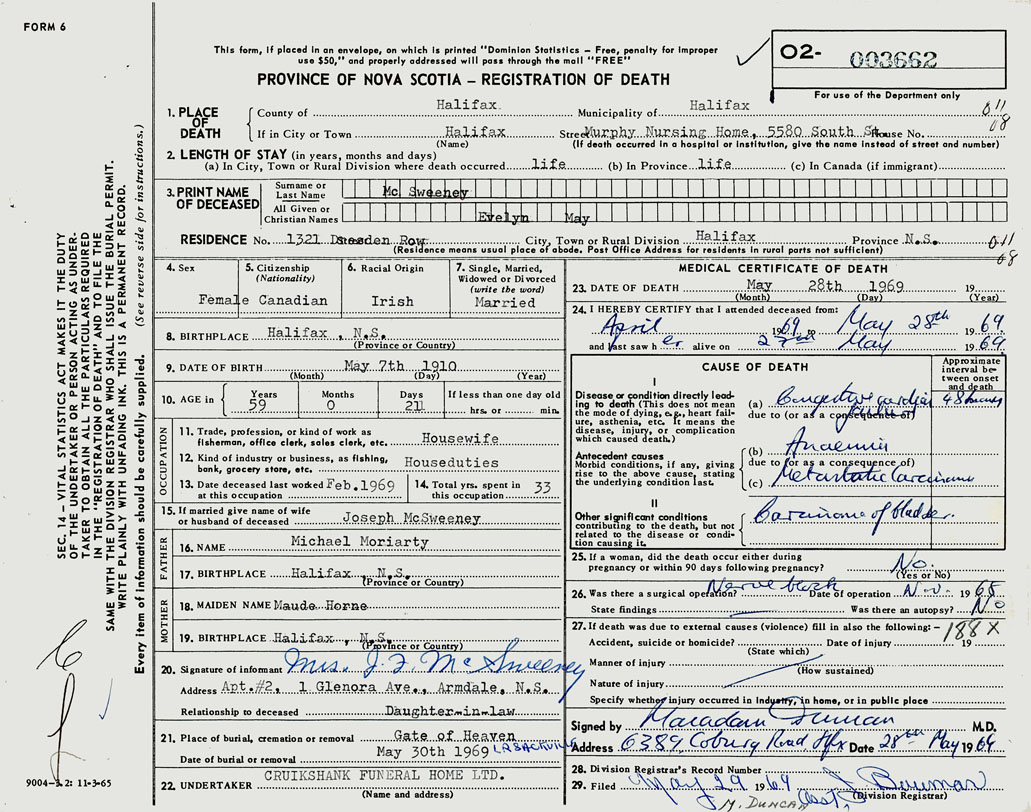 FORM 6
This form, if placed in an envelope, on which is printed "Dominion Statistics – Free, penalty for improper
use $50," and properly addressed will pass through the mail "FREE"
PROVINCE OF NOVA SCOTIA – REGISTRATION OF DEATH
O2- 003662
For use of the Department only
1. PLACE OF DEATH
County of Halifax. Municipality of Halifax
011
08
If in City or Town Halifax Street Murphy Nursing Home, 5580 South St. House No.
(Name) (If death occurred in a hospital or institution, give the name instead of street and number)
2. LENGTH OF STAY (in years, months and days)
(a) In City, Town or Rural Division where death occurred life (b) In Province life (c) In Canada (if immigrant)
3. PRINT NAME OF DECEASED
Surname or Last Name Mc Sweeney
All Given or Christian Names Evelyn May
RESIDENCE No. 1321 Dresden Row City, Town or Rural Division Halifax Province N.S.
011
08
(Residence means usual place of abode. Post Office Address for residents in rural parts not sufficient)
4. Sex
Female
5. Citizenship
(Nationality)
Canadian
6. Racial Origin
Irish
7. Single, Married,
Widowed or Divorced
(write the word)
Married
8. BIRTHPLACE Halifax, N.S.
(Province or Country)
9. DATE OF BIRTH May 7th 1910
(Month) (Day) (Year)
10. AGE in
Years 59
Months 0
Days 21
If less than one day old
hrs. or min.
OCCUPATION
11. Trade, profession, or kind of work as
fisherman, office clerk, sales clerk, etc. Housewife
12. Kind of industry or business, as fishing,
bank, grocery store, etc. Houseduties
13. Date deceased last worked Feb.1969
at this occupation
14. Total yrs. spent in
this occupation 33
15. If married give name of wife
or husband of deceased Joseph McSweeney
FATHER
16. NAME Michael Moriarty
17. BIRTHPLACE Halifax N.S.
(Province or Country)
MOTHER
18. MAIDEN NAME Maude Horne
19. BIRTHPLACE Halifax, N.S.
(Province or Country)
20. Signature of informant Mrs. J. F. McSweeney
Address Apt.#2, 1 Glenora Ave., Armdale, N.S.
Relationship to deceased Daughter-in-law
21. Place of burial, cremation or removal Gate of Heaven
Date of burial or removal May 30th 1969 LR SACKVILLE
22. UNDERTAKER CRUIKSHANK FUNERAL HOME LTD.
(Name and address)
MEDICAL CERTIFICATE OF DEATH
23. DATE OF DEATH May 28th 1969 19
(Month) (Day) (Year)
24. I HEREBY CERTIFY that I attended deceased from:
April 1969 to May 28th 1969
and last saw her alive on May 1969
CAUSE OF DEATH
Approximate
interval be-
tween onset
and death
I
Disease or condition directly lead-
ing to death (This does not mean
the mode of dying, e.g., heart fail-
ure, asthenia, etc. It means the
disease, injury, or complication
which caused death.)
(a) Congestive cardiac failure 48 hours
due to (or as a consequence of)
Antecedent causes
Morbid conditions, if any, giving
rise to the above cause, stating
the underlying condition last.
(b) Anaemia
due to (or as a consequence of)
(c) Metastatic Carcinoma
II
Other significant conditions
contributing to the death, but not
related to the disease or condi-
tion causing it.
Carcinoma of bladder.
25. If a woman, did the death occur either during
pregnancy or within 90 days following pregnancy? No.
(Yes or No)
26. Was there a surgical operation? Nerve block Date of operation Nov. 1968
State findings Was there an autopsy? No
27. If death was due to external causes (violence) fill in also the following: – 188X
Accident, suicide or homicide? Date of injury 19
(State which)
Manner of injury
(How sustained)
Nature of injury
Specify whether injury occurred in industry, in home, or in public place
Signed by Macadam Duncan M.D.
Address 6389 Coburg Road Hfx Date 28th May 1969
28. Division Registrar's Record Number
29. Filed May 29 1969
(Division Registrar)
M. DUNCAN
SEC. 14 – VITAL STATISTICS ACT MAKES IT THE DUTY
OF THE UNDERTAKER OR PERSON ACTING AS UNDER-
TAKER TO OBTAIN ALL THE PARTICULARS REQUIRED
IN THE "REGISTRATION OF DEATH" AND TO FILE THE
SAME WITH THE DIVISION REGISTRAR WHO SHALL ISSUE THE BURIAL PERMIT.
WRITE PLAINLY WITH UNFADING INK. THIS IS A PERMANENT RECORD.
Every item of information should be carefully supplied. (See reverse side for instructions.)
9004-3.2: 11-3-65